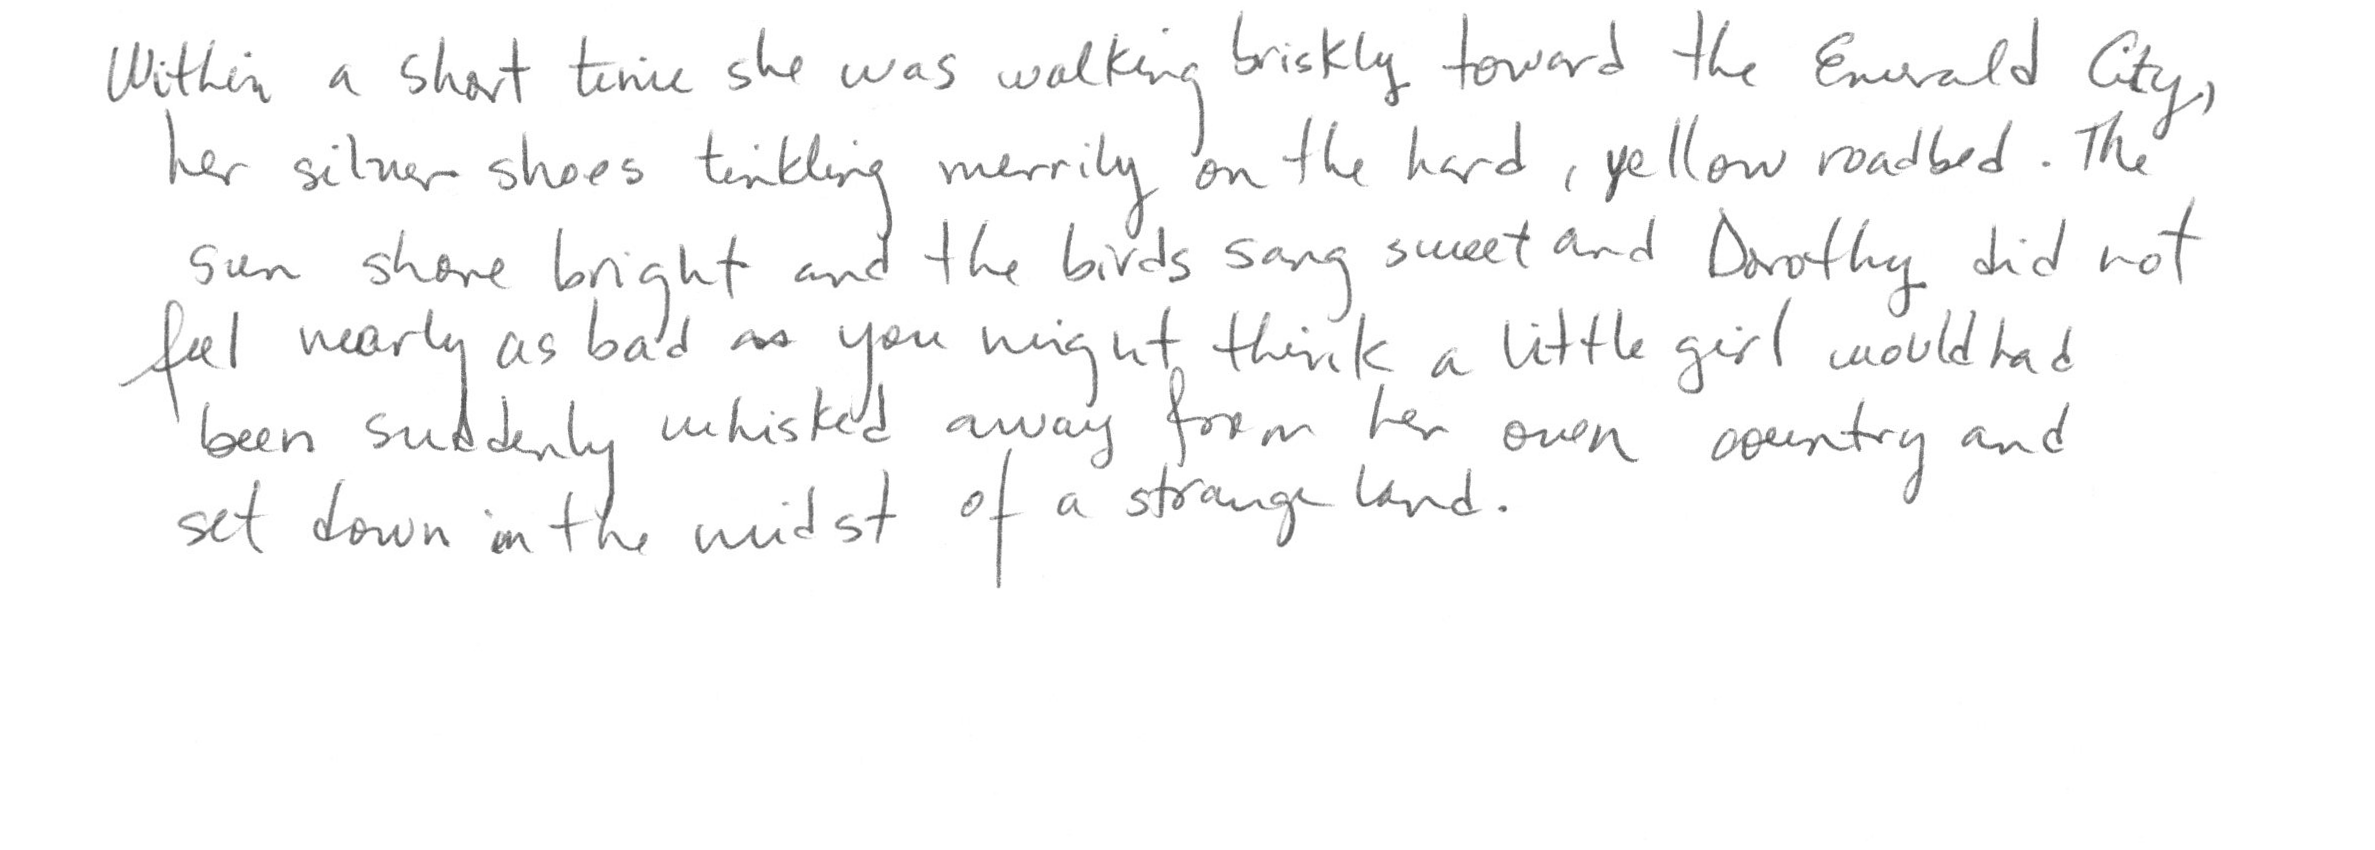 Within a short time she was walking briskly toward the Emerald City,
her silver shoes tinkling merrily on the hard, yellow roadbed. The
sun shone bright and the birds sang sweet and Dorothy did not
feel nearly as bad as you might think a little girl would had
been suddenly whisked away from her own country and
set down in the midst of a strange land.